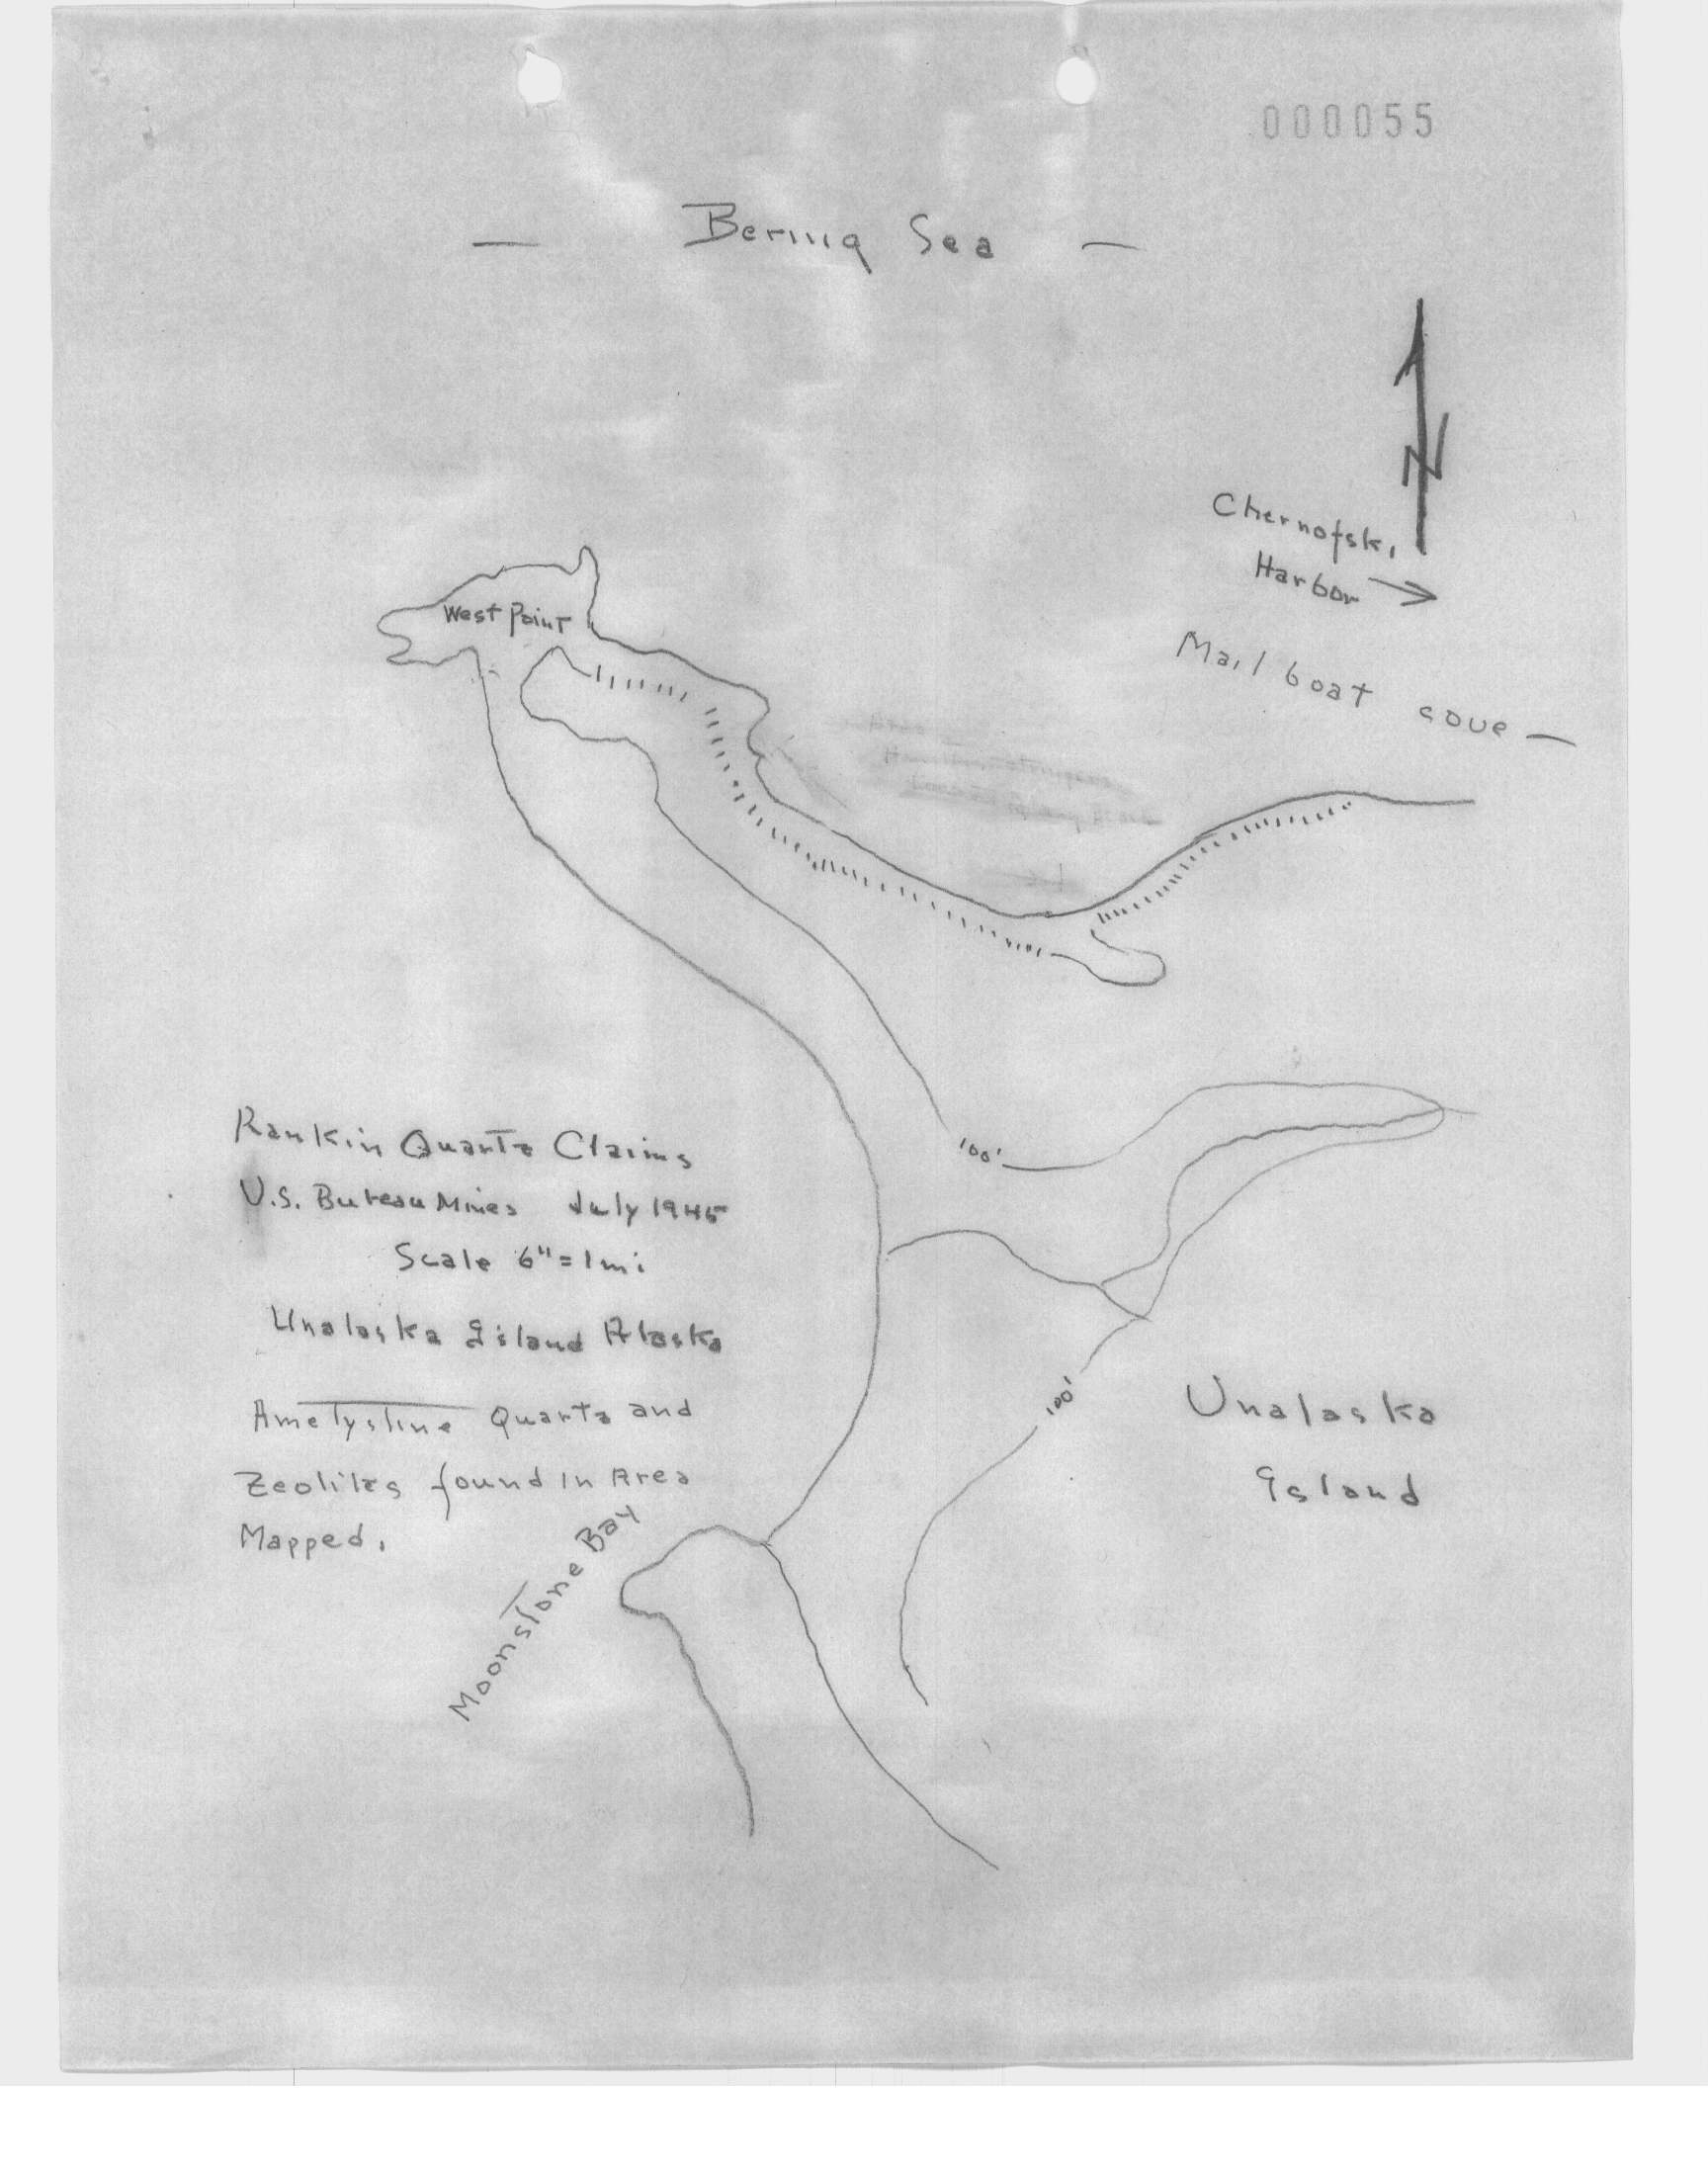 000055
— Bering Sea —
N
Chernofski
Harbor →
Mail boat cove —
West Point
100'
Rankin Quartz Claims
U.S. Bureau Mines July 1945
Scale 6" = 1 mi
Unalaska Island Alaska
Ametystine Quartz and
Zeolites found in Area
Mapped.
Moonstone Bay
100'
Unalaska
Island